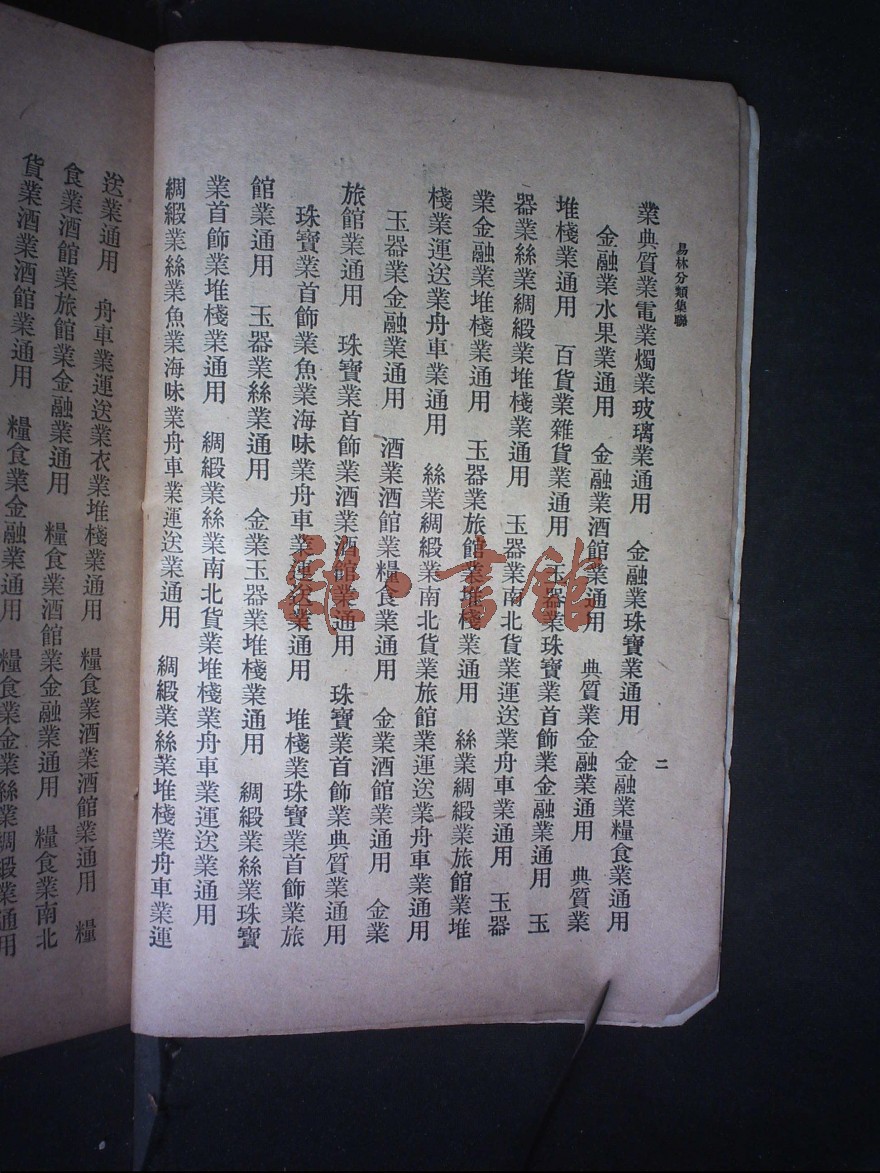 易林分類集聯
二
業典質業電業燭業玻璃業通用　金融業珠寶業通用　金融業糧食業通用
金融業水果業通用　金融業酒館業通用　典質業金融業通用　典質業
堆棧業通用　百貨業雜貨業通用　玉器業珠寶業首飾業金融業通用　玉
器業絲業綢緞業堆棧業通用　玉器業南北貨業運送業舟車業通用　玉器
業金融業堆棧業通用　玉器業旅館業堆棧業通用　絲業綢緞業旅館業堆
棧業運送業舟車業通用　絲業綢緞業南北貨業旅館業運送業舟車業通用
玉器業金融業通用　酒業酒館業糧食業通用　金業酒館業通用　金業
旅館業通用　珠寶業首飾業酒業酒館業通用　珠寶業首飾業典質業通用
珠寶業首飾業魚業海味業舟車業運送業通用　堆棧業珠寶業首飾業旅
館業通用　玉器業絲業通用　金業玉器業堆棧業通用　綢緞業絲業珠寶
業首飾業堆棧業通用　綢緞業絲業南北貨業堆棧業舟車業運送業通用
綢緞業絲業魚業海味業舟車業運送業通用　綢緞業絲業堆棧業舟車業運
送業通用　舟車業運送業衣業堆棧業通用　糧食業酒業酒館業通用　糧
食業酒館業旅館業金融業通用　糧食業酒館業金融業通用　糧食業南北
貨業酒業酒館業通用　糧食業金融業通用　糧食業金業絲業綢緞業通用